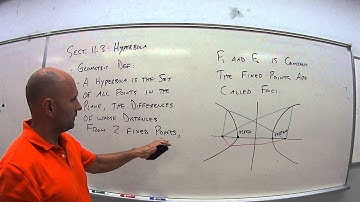 Sect. 11.3: Hyperbola
- Geometric Def:
- A Hyperbola is the Set
of all Points in the
Plane, the Differences
of whose Distances
From 2 Fixed Points,
F₁ and F₂ is Constant
The Fixed Points Are
Called Foci.